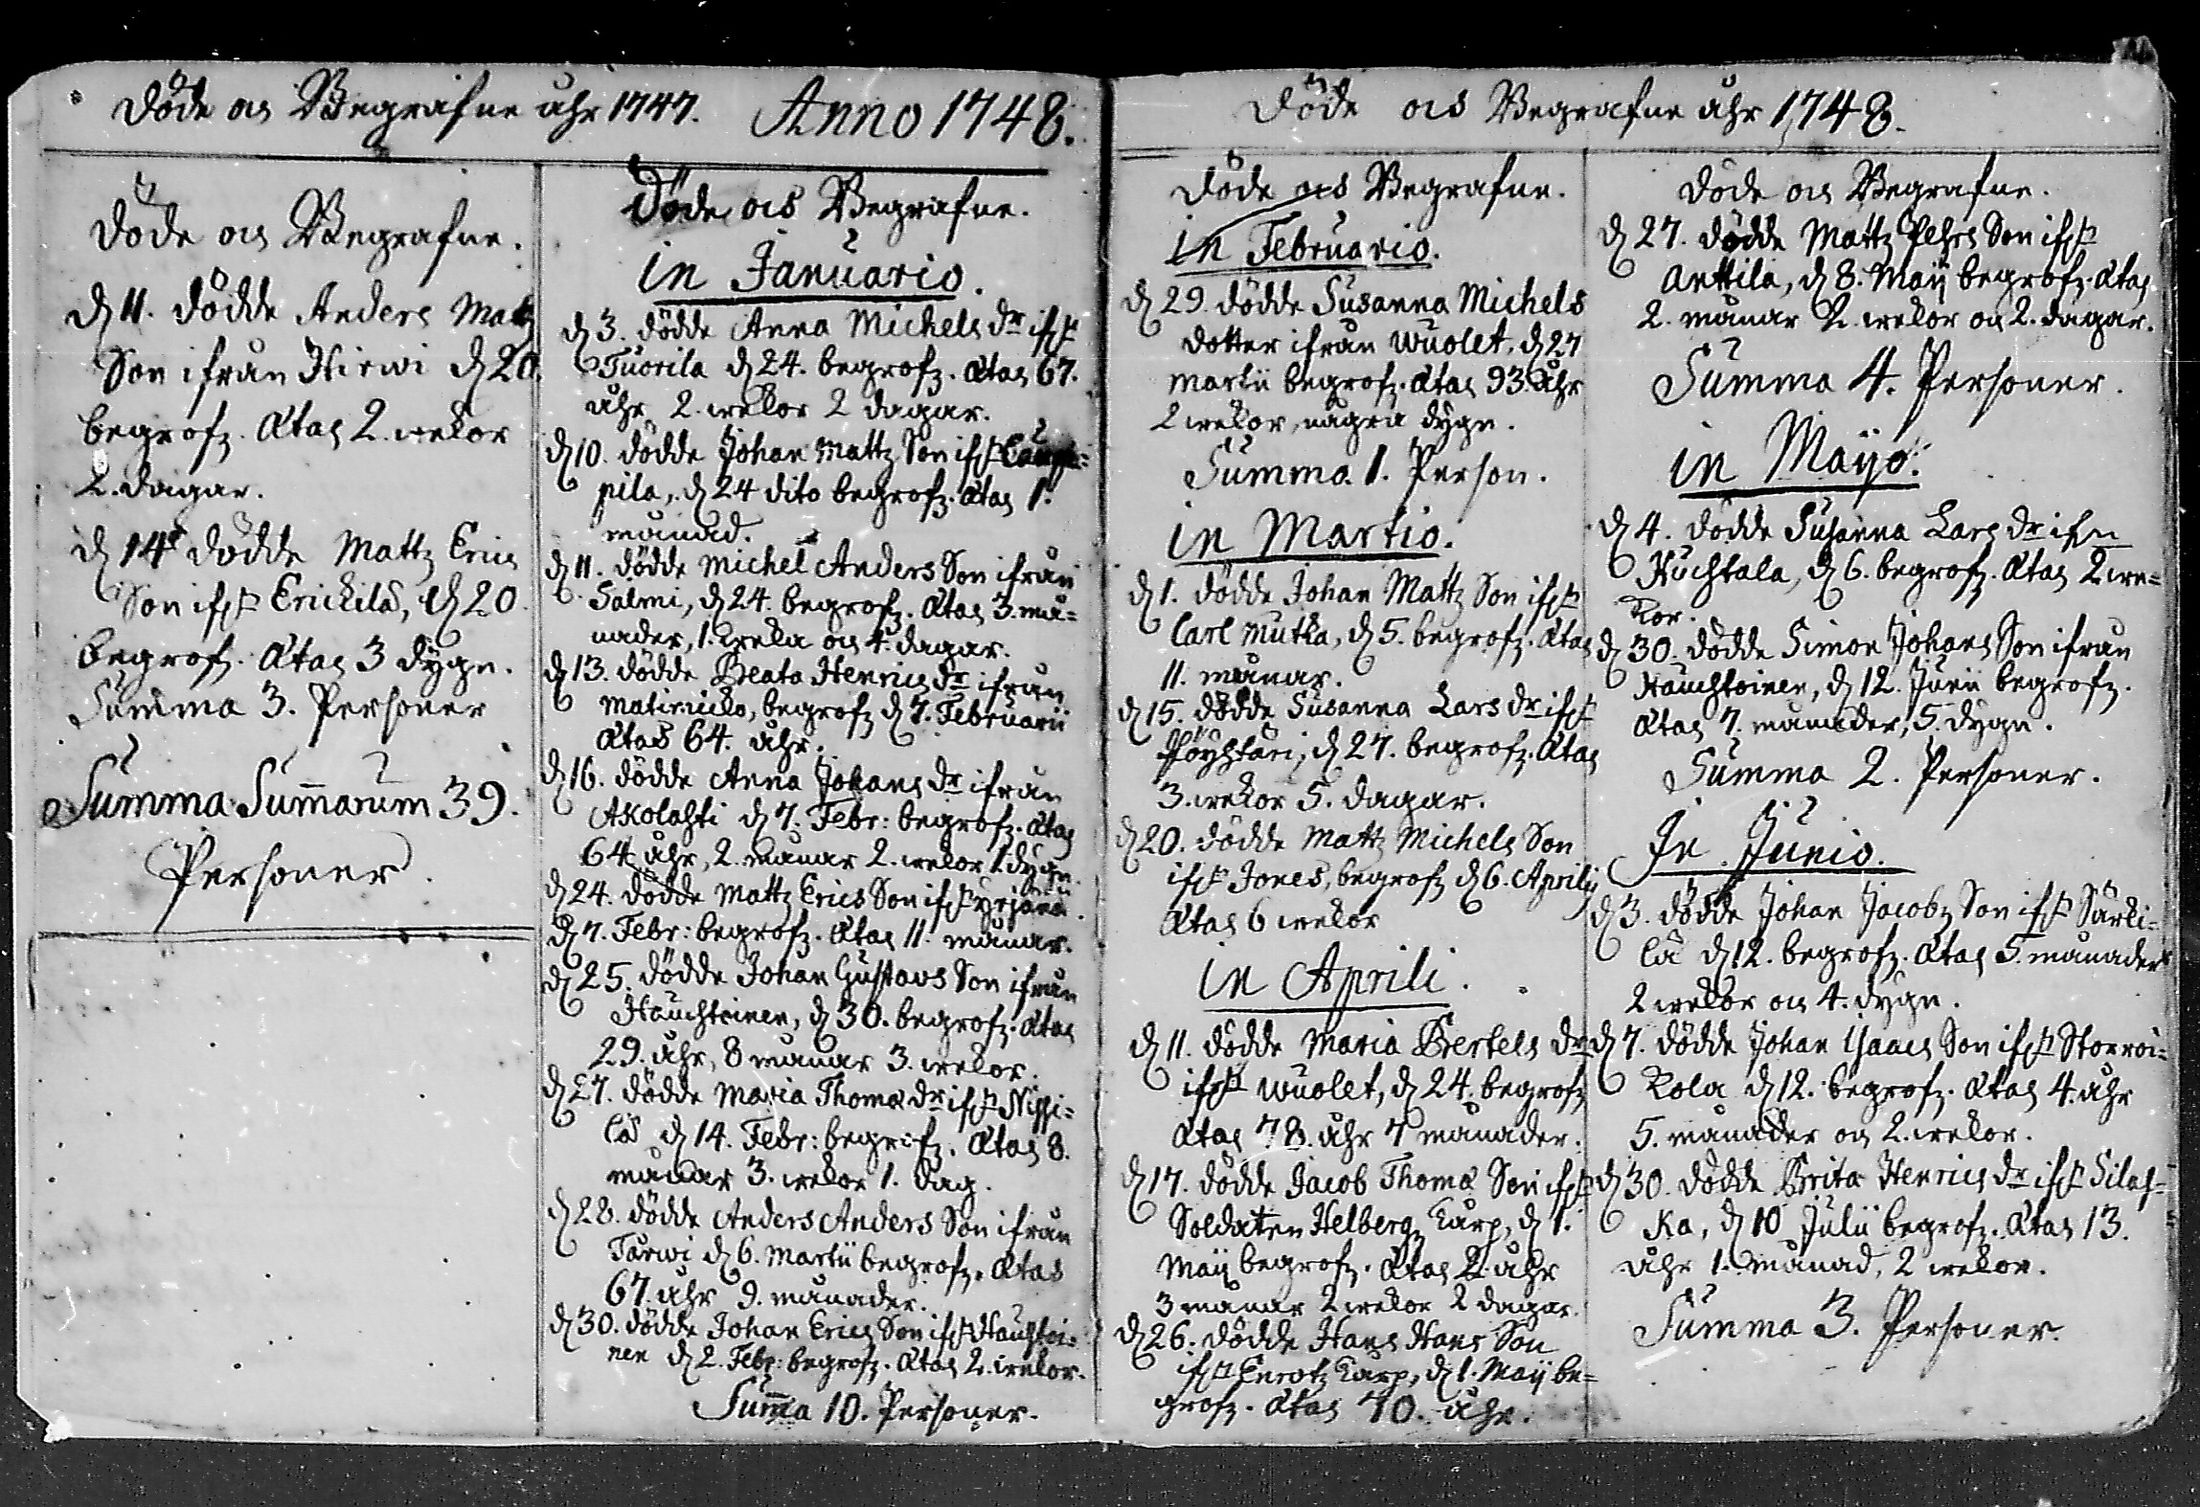 Döde och Begrafne åhr 1747. Anno 1748.
Döde och Begrafne.
d 11. dödde Anders Matz
Son ifrån Hirwi d 20.
begrofz. Ætas 2. wekor
2. dagar.
d 14 dödde Mattz Erics
Son ifrn Erickilä, d 20.
begrofz. Ætas 3 dygn.
Summa 3. Personer
Summa Summarum 39.
Personer.
Döde och Begrafne.
in Januario.
d 3. dödde Anna Michels dr ifrn
Tuorila d 24. begrofz. Ætas 67.
åhr 2. wekor 2 dagar.
d 10. dödde Johan Mattz Son ifrn
pila, d 24 dito begrofz. Ætas 1.
månad.
d 11. dödde Michel Anders Son ifrån
Salmi, d 24. begrofz. Ætas 3. må=
nader, 1. weka och 4. dagar.
d 13. dödde Beata Henrics dr ifrån
begrofz d 7. Februarii
Ætas 64. åhr.
d 16. dödde Anna Johans dr ifrån
Akolahti d 7. Febr: begrofz. Ætas
64 åhr, 2. månar 2. wekor 1. dygn.
d 24. dödde Mattz Erics Son ifrn Yrjänä.
d 7. Febr: begrofz. Ætas 11. månar.
d 25. dödde Johan Gustavs Son ifrån
Hauchtoinen, d 30. begrofz. Ætas
29. åhr, 8 månar 3. wekor.
d 27. dödde Maria Thomæ dr ifrn Nissi=
lä d 14. Febr: begrofz. Ætas 8.
månar 3. wekor 1. dag.
d 28. dödde Anders Anders Son ifrån
Tarwi d 6. Martii begrofz. Ætas
67. åhr 9. månader.
d 30. dödde Johan Erics Son ifrn Hauchtoi=
nen d 2. Febr: begrofz. Ætas 2. wekor.
Suma 10. Personer.
Döde och Begrafne åhr 1748.
Döde och Begrafne.
in Februario.
d 29. dödde Susanna Michels
dotter ifrån Wuolet, d 27
Martii begrofz. Ætas 93. åhr
2 wekor, några dygn.
Summa 1. Person.
in Martio.
d 1. dödde Johan Mattz Son ifrn
Carl Mutka, d 5. begrofz. Ætas
11. månar.
d 15. dödde Susanna Lars dr ifrn
Pöyhtäri, d 27. begrofz. Ætas
3. wekor 5. dagar.
d 20. dödde Mattz Michels Son
ifrn Jones, begrofz d 6. Aprilij
Ætas 6 wekor
in Aprili.
d 11. dödde Maria Bertels dr
ifrn Wuolet, d 24. begrofz
Ætas 78. åhr 7 månader.
d 17. dödde Jacob Thomæ Son ifrn
Soldaten Helbergz Karp, d 1.
Maij begrofz. Ætas 2. åhr
3 månar 2 wekor 2 dagar.
d 26. dödde Hans Hans Son
ifrn Enrotz Karp, d 1. Maij be=
grofz. Ætas 70. åhr.
Döde och Begrafne.
d 27. dödde Mattz Pehrs Son ifrn
Anttila, d 8. Maij begrofz. Ætas
2. månar 2. wekor och 2. dagar.
Summa 4. Personer.
in Mayo.
d 4. dödde Susanna Lars dr ifrn
Huchtala, d 6. begrofz. Ætas 2 we=
kor.
d 30. dödde Simon Johans Son ifrån
Hauchtoinen, d 12. Junii begrofz.
Ætas 7. månader, 5. dygn.
Summa 2. Personer.
In Junio.
d 3. dödde Johan Jacobz Son ifrn Särki=
lä d 12. begrofz. Ætas 5. månader
2 wekor och 4. dygn.
d 7. dödde Johan Isaacs Son ifrn Storroi=
kola d 12. begrofz. Ætas 4. åhr
5. månader och 2. wekor.
d 30. dödde Brita Henrics dr ifrn Silas=
ka, d 10 Julii begrofz. Ætas 13.
åhr 1. månad, 2 wekor.
Summa 3. Personer.